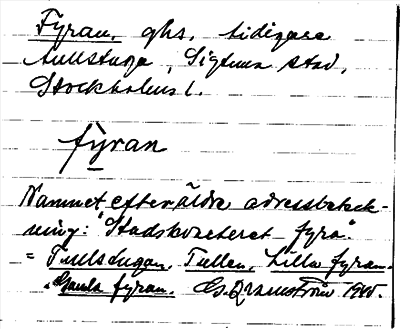 Fyran, ghs, tidigare
tullstuga, Sigtuna stad,
Stockholms l.
fyran
Namnet efter äldre adressbeteck-
ning: "Stadskvarteret fyra".
= Tullstugan, Tullen, Lilla fyran.
Gamla fyran. G. Branström 1945.